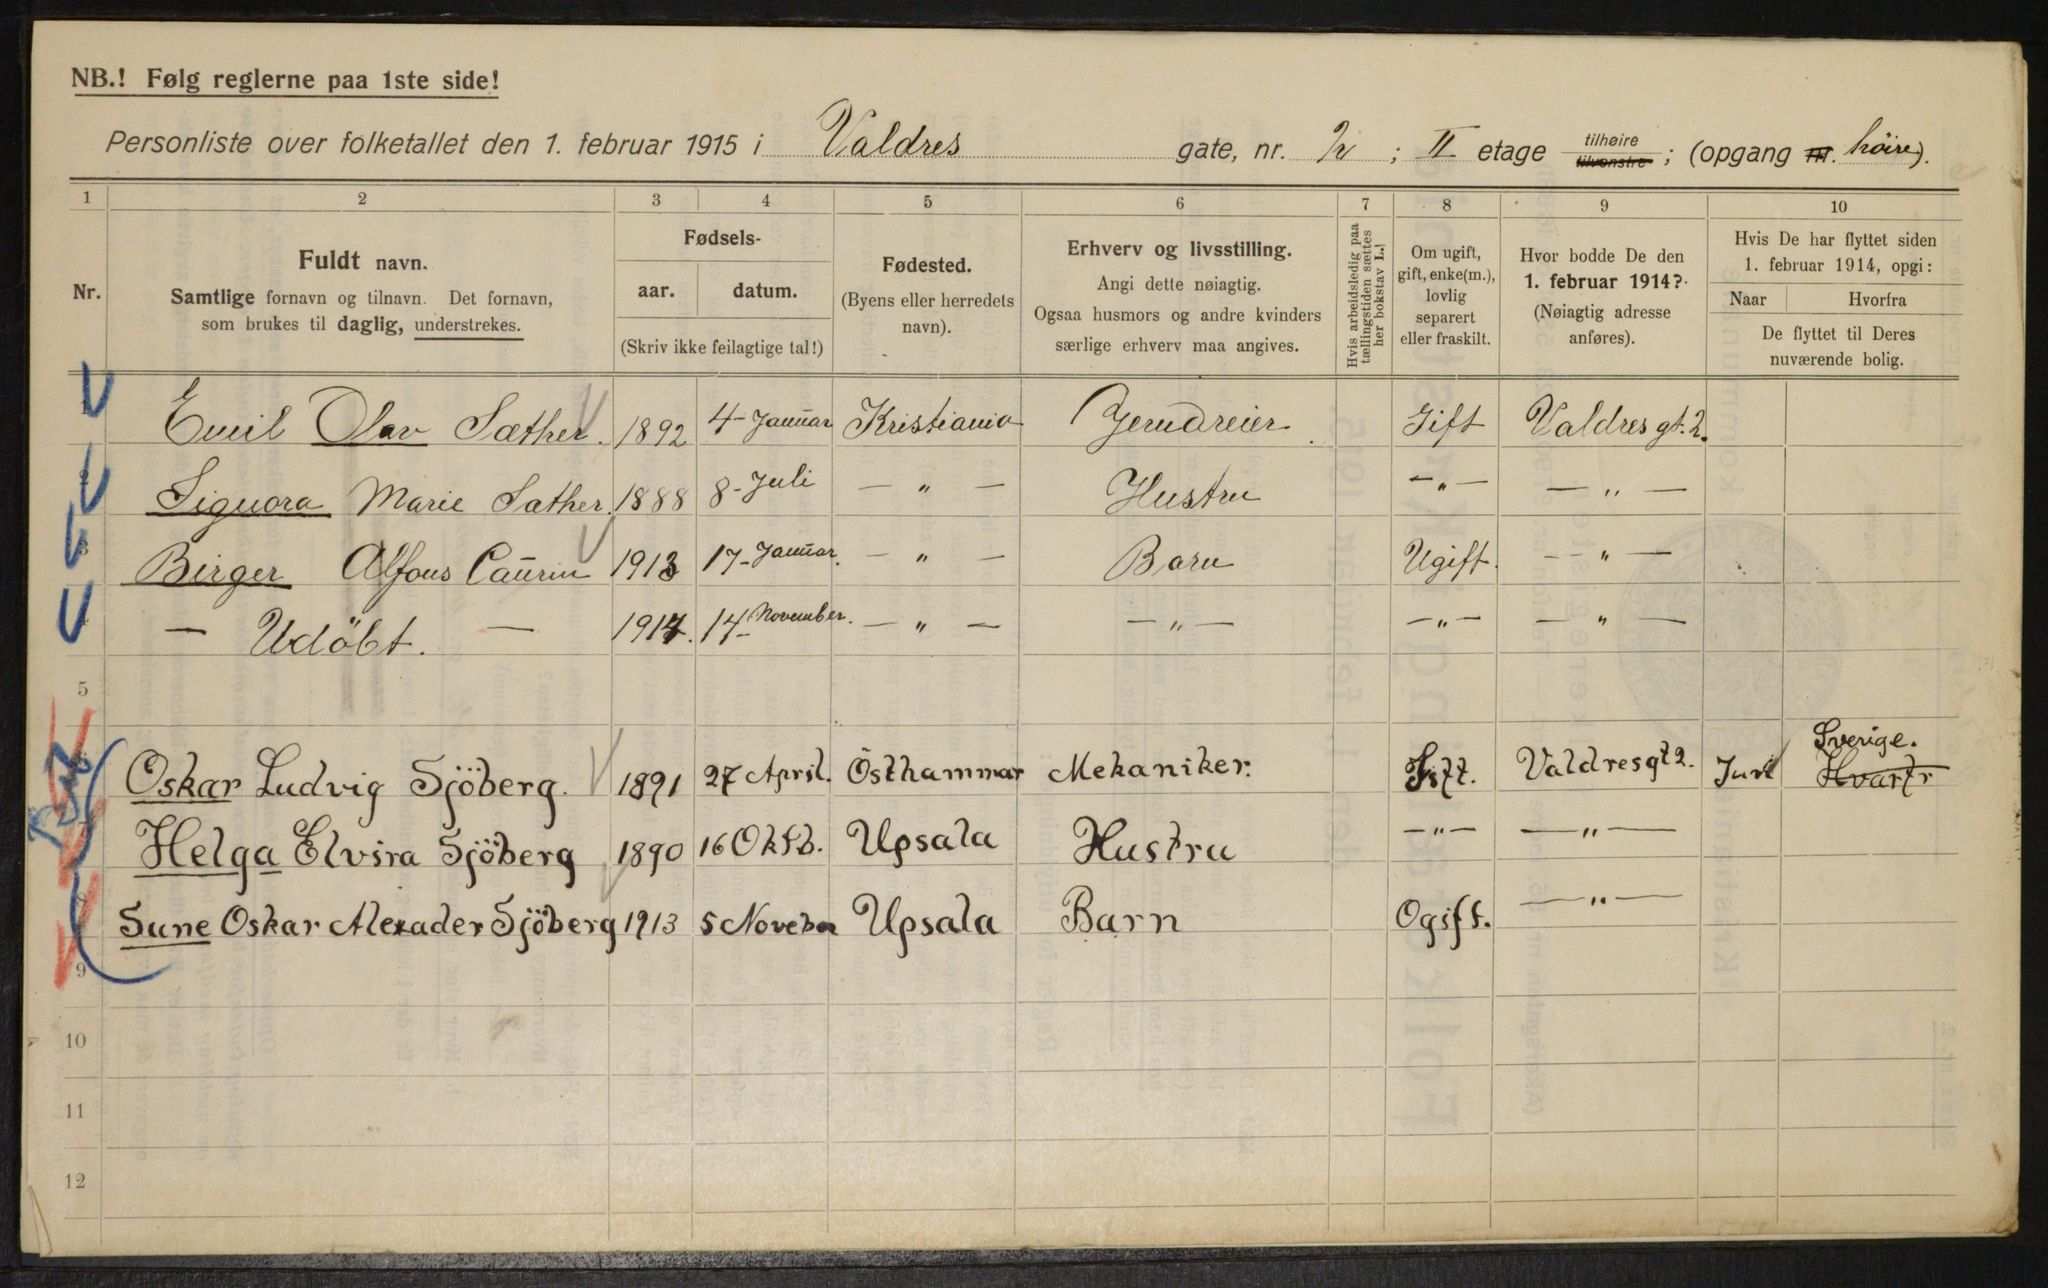 NB.! Følg reglerne paa 1ste side!
Personliste over folketallet den 1. februar 1915 i Valdres gate, nr. 2 ; II etage tilhøire tilvenstre ; (opgang nr. höire).
1 2 3 4 5 6 7 8 9 10
Nr.
Fuldt navn.
Samtlige fornavn og tilnavn. Det fornavn,
som brukes til daglig, understrekes.
Fødsels-
aar. datum.
(Skriv ikke feilagtige tal!)
Fødested.
(Byens eller herredets
navn).
Erhverv og livsstilling.
Angi dette nøiagtig.
Ogsaa husmors og andre kvinders
særlige erhverv maa angives.
Hvis arbeidsledig paa
tællingstiden sættes
her bokstav L.!
Om ugift,
gift, enke(m.),
lovlig
separert
eller fraskilt.
Hvor bodde De den
1. februar 1914?
(Nøiagtig adresse
anføres).
Hvis De har flyttet siden
1. februar 1914, opgi:
Naar Hvorfra
De flyttet til Deres
nuværende bolig.
Emil Olav Sæther. 1892 4-Januar Kristiania Jerndreier Gift Valdres gt. 2.
Signora Marie Sæther. 1888 8-Juli — " — Hustru — " — — " —
3 Birger Alfons Caurin 1913 17-Januar. — " — Barn Ugift. — " —
— Udöbt. — 1914. 14-November. — " — — " — — " — — " —
5
Sverige.
Oskar Ludvig Sjöberg. 1891 27 April. Östhammar Mekaniker. Gift. Valdresgt 2.
Helga Elvira Sjöberg 1890 16 Oktb. Upsala Hustru — " — — " —
Sune Oskar Alexader Sjöberg 1913 5 Novebr Upsala Barn Ogift. — " —
9
10
11
12